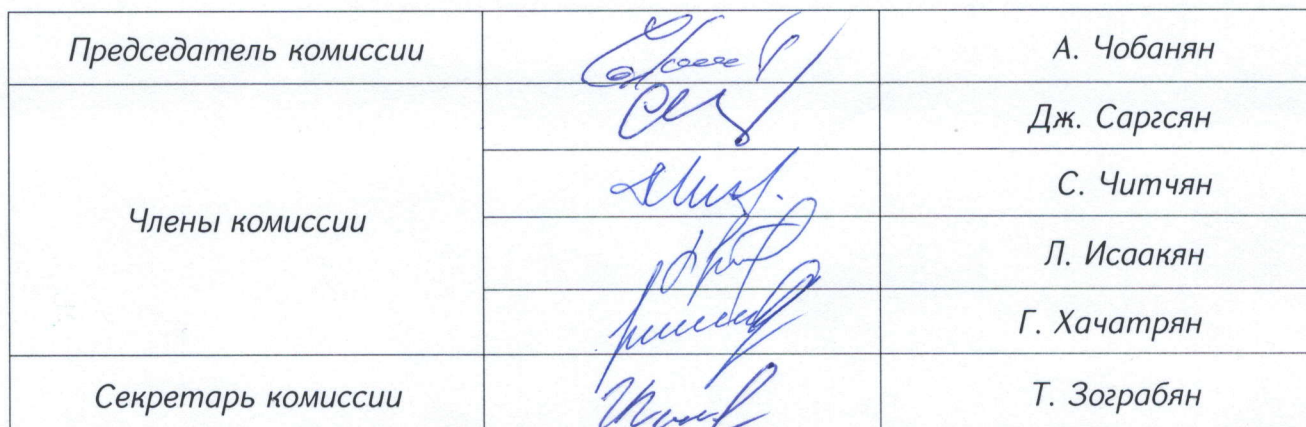 Председатель комиссии
А. Чобанян
Члены комиссии
Дж. Саргсян
С. Читчян
Л. Исаакян
Г. Хачатрян
Секретарь комиссии
Т. Зограбян